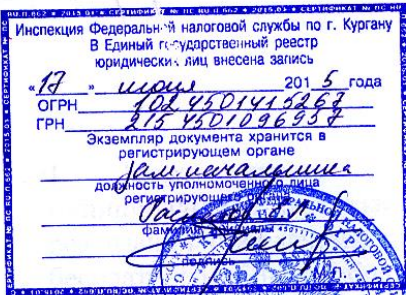 Инспекция Федеральной налоговой службы по г. Кургану
В Единый государственный реестр
юридических лиц внесена запись
«17» июня 2015 года
ОГРН 1024501415267
ГРН 2154501096957
Экземпляр документа хранится в
регистрирующем органе
Зам. начальника
должность уполномоченного лица
регистрирующего органа
фамилия, инициалы
подпись
М.П.